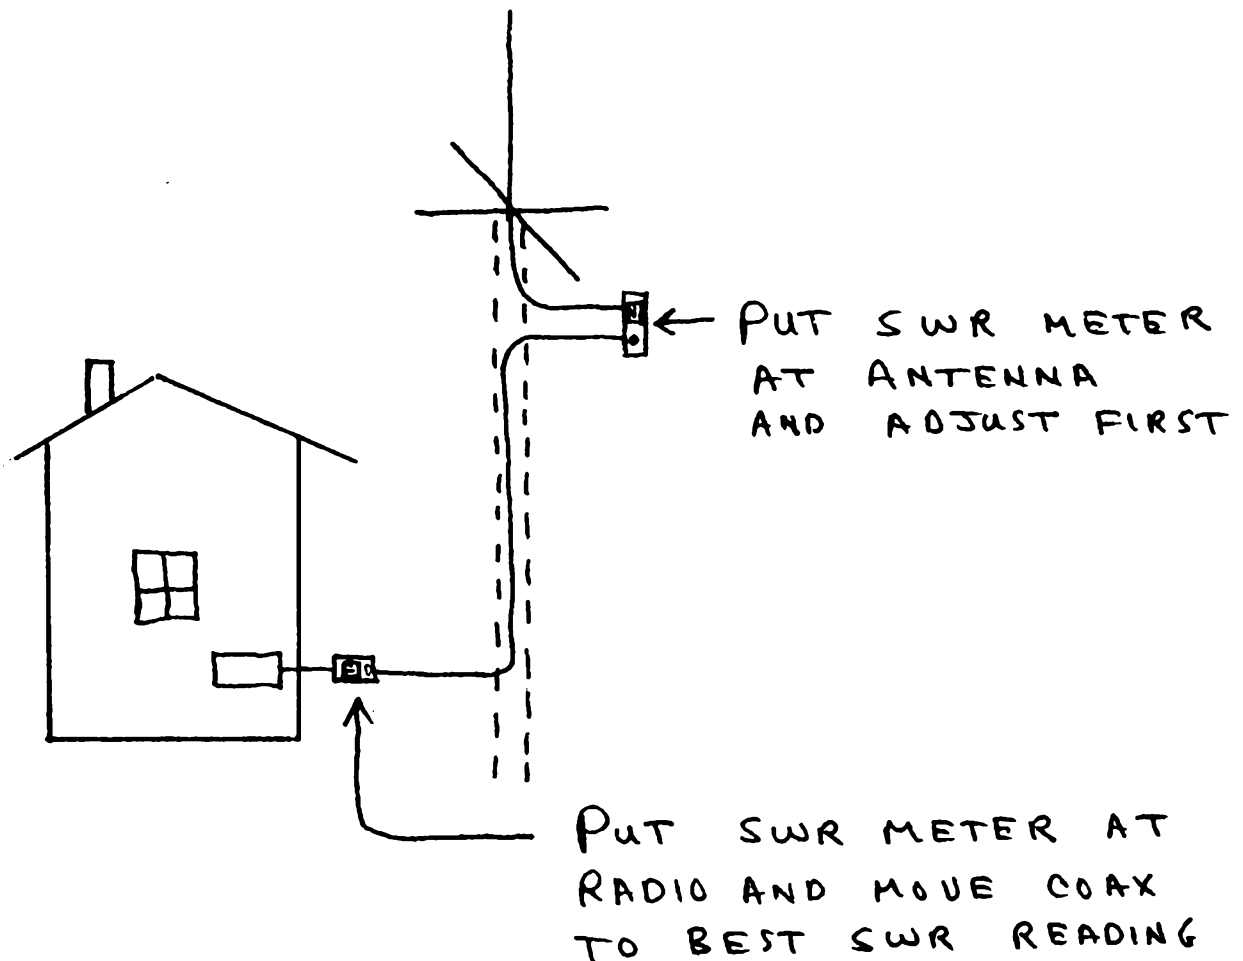 PUT SWR METER
AT ANTENNA
AND ADJUST FIRST
PUT SWR METER AT
RADIO AND MOVE COAX
TO BEST SWR READING